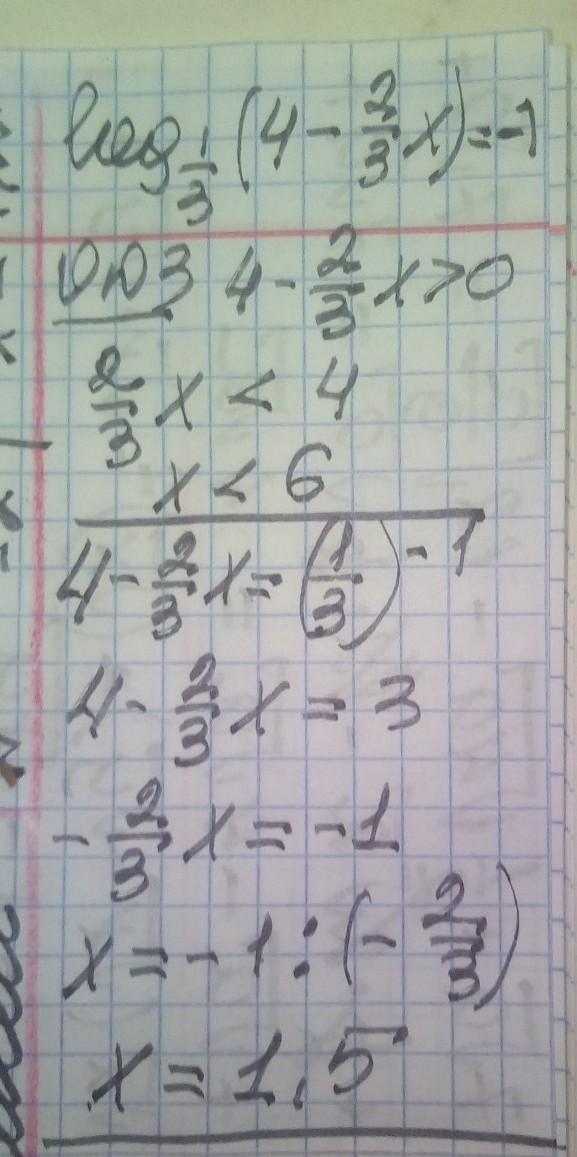 log_{1/3} (4 - 2/3 x) = -1
ОДЗ 4 - 2/3 x > 0
2/3 x < 4
x < 6
4 - 2/3 x = (1/3)^{-1}
4 - 2/3 x = 3
- 2/3 x = -1
x = -1 : (- 2/3)
x = 1,5